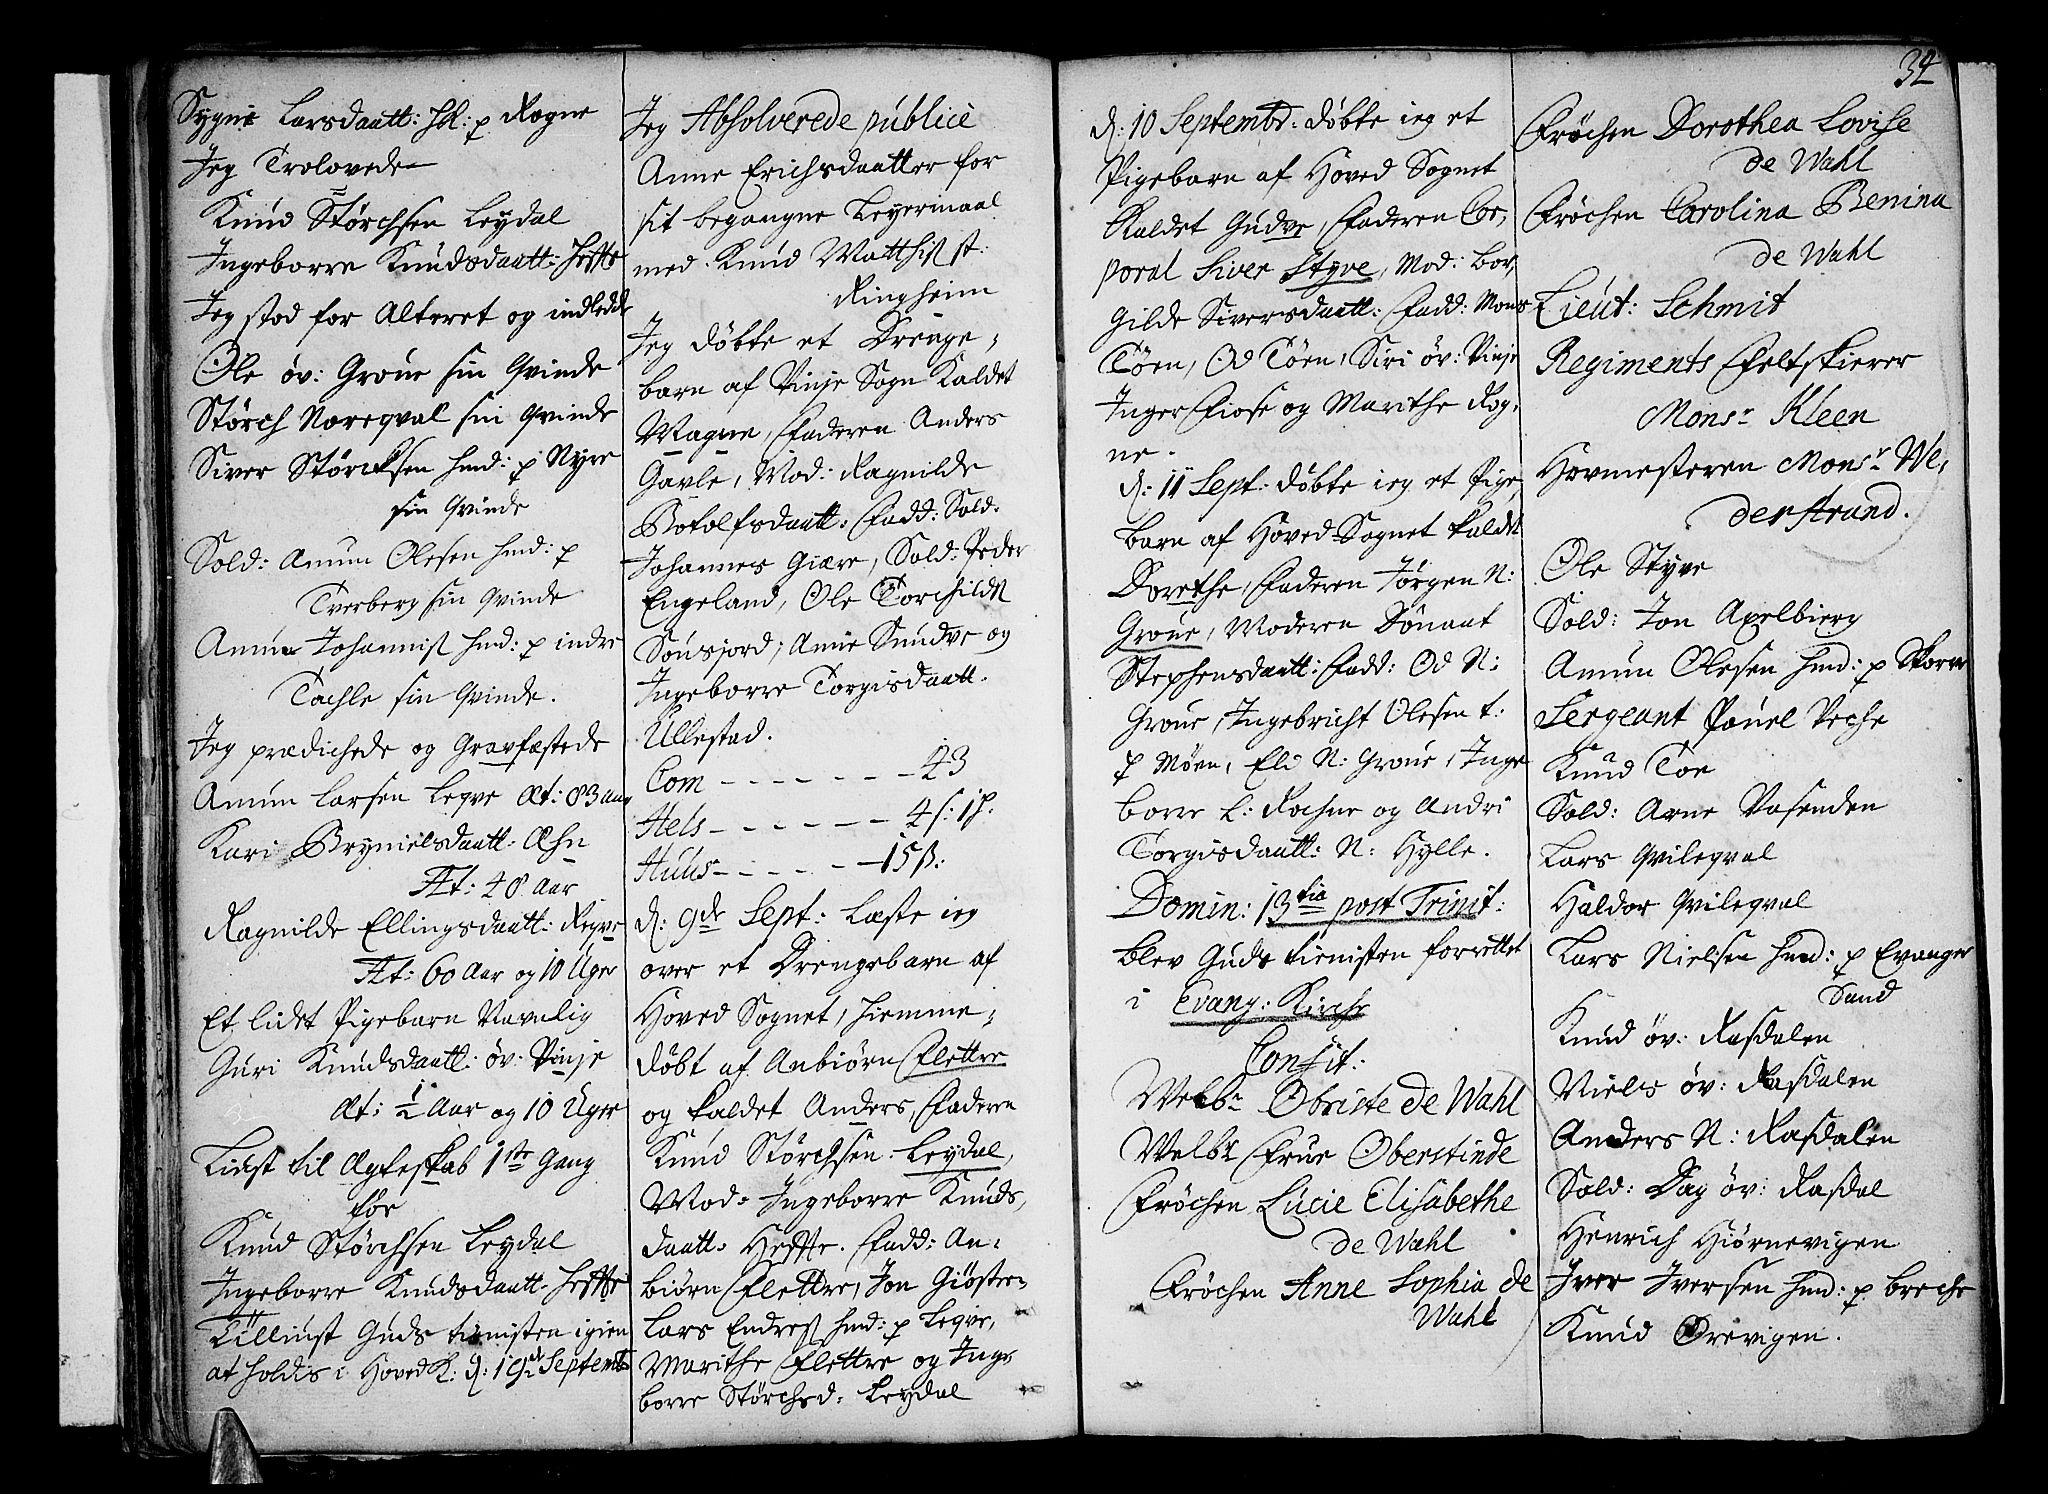 Sygni Larsdaatt: hk: p Rogne
Jeg Trolovede
Knud Störchsen Leydal
Ingeborre Knudsdaatt: Heffte
Jeg stod for Alteret og indledde
Ole öv: Groue sin Qvinde
Störch Noreqval sin Qvinde
Siver Störcksen hmd: p Nyre
sin Qvinde
Sold: Amum Olesen hmd: p
Tverberg sin Qvinde
Amum Johannis hmd: p indre
Tachle sin Qvinde.
Jeg prædichede og Gravfæstede
Amum Larsen Leqve Æt: 83 aar
Kari Brynielsdaatt:
Æt: 48 aar
Ragnilde Ellingsdaatt: Reqve
Æt: 60 Aar og 10 Uger
Et lidet Pigebarn Navnlig
Guri Knudsdaatt: öv: Vinje
Æt: ½ Aar og 10 Uger
Liust til Ægteskab 1ste Gang
for
Knud Störchsen Leydal
Ingeborre Knudsdaatt: Heffte
Tilliust Guds tienisten igien
at holdis i Hoved K: d: Septembr
Jeg Absolverede publice
Anne Erichsdaatter for
sit begangne Leyermaal
med Knud Matthis st:
Ringheim
Jeg döbte et Drenge-
barn af Vinje Sogn Kaldet
Magne, Faderen Anders
Gavle, Mod: Ragnilde
Botolfsdaatt: Fadd: Sold:
Johannes Giære, Sold: Peder
Engeland, Ole Torchilds
Sönsjord, Anne Sundve og
Ingeborre Torgisdaatt.
Ullestad.
Com - - - - - - - 23
Hels - - - - - - 4
Huus - - - - - 15 ß:
d: 9de Sept: Læste ieg
over et Drengebarn af
Hoved Sognet, hiemme-
döbt af Anbiörn Flettre
og kaldet Anders, Faderen
Knud Störchsen Leydal,
Mod: Ingeborre Knuds,
daatt: Heffte. Fadd: An-
biörn Flettre, Jon Giöstre-
Lars Endres hmd: p Leqve,
Marithe Flettre og Inge
borre Störchsd: Leydal
34
d: 10 Septembr. döbte ieg et
Pigebarn af Hoved Sognet
Kaldet Gudve, Faderen Cor,
poral Siver Styve, Mod: Bor,
gilde Siversdaatt: Fadd: Mons
Töen, Od Töen, Siri öv: Vinje
Inger Fiose og Marithe Rog,
ne.
d: 11 Sept: döbte ieg et Pige
barn af Hoved Sognet kaldet
Dorethe, Faderen Jörgen N:
Groue, Moderen Sönaat
Stephensdaatt: Fadd: Od N:
Groue, Ingebricht Olesen t:
p Möen, Eli N: Groue, Inge
borre L: Rachne og Andri
Torgisdaatt: N: Hylle.
Domin: 13tia post Trinit:
blev Guds tienisten forrettet
i Evang: Kirche
Confit:
Welbr Obriste de Wahl
Welbr Frue Oberstinde
Fröchen Lucie Elisabethe
de Wahl
Fröchen Anne Sophia de
Wahl
Fröchen Dorothea Lovise
de Wahl
Fröchen Carolina Benina
de Wahl
Lieut: Schmit
Regiments Feltskierer
Monsr Kleen
Hovmesteren Monsr We,
derstrand.
Ole Styve
Sold: Jon Axelbierg
Amum Olesen hmd: p Skorve
Sergeant Pouel Peche
Knud Töe
Sold: Arne Vasenden
Lars Qvileqval
Haldor Qvileqval
Lars Nielsen hmd: p Evanger
Sund
Knud öv: Rasdalen
Niels öv: Rasdalen
Anders N: Rasdalen
Sold: Dag öv: Rasdal
Henrich Hiörnevigen
Iver Iversen hmd: p breche
Knud Örevigen.